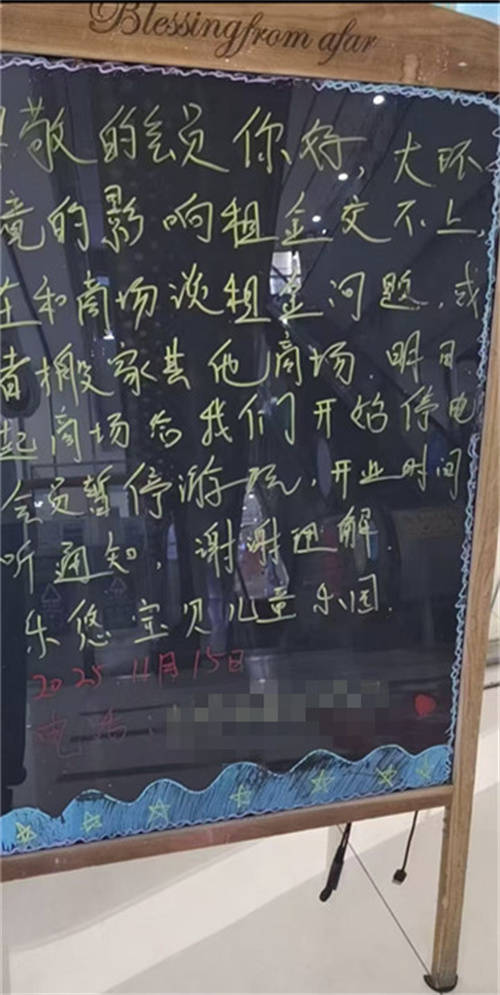 Blessing from afar
敬的会员你好,大环
境的影响租金交不上,
在和商场谈租金问题,或
者搬家其他商场.明日
起商场给我们开始停电
会员暂停游玩,开业时间
听通知,谢谢理解.
乐悠宝贝儿童乐园.
2025.11月15日
电话: